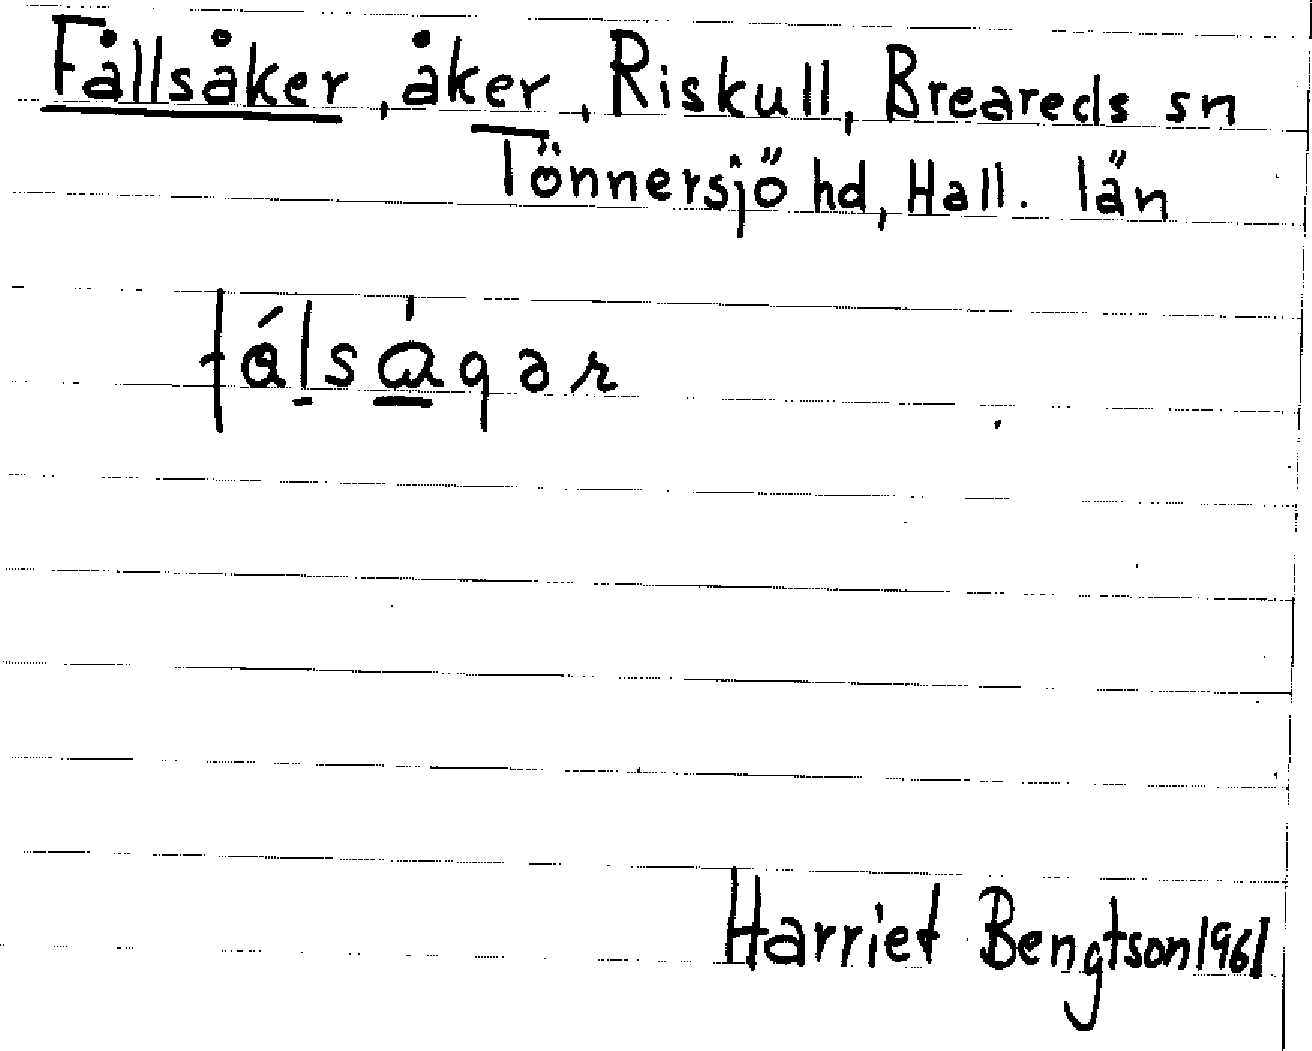 Fållsåker, åker, Riskull, Breareds sn
Tönnersjö hd, Hall. län
fálságər
Harriet Bengtson 1961